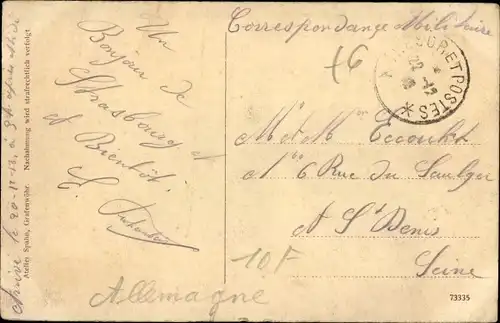 Correspondance Militaire
+6
TRÉSOR ET POSTES
22
Un
Bonjour de
Strasbourg
et Bientôt
Mr et Mme
No 6 Rue du Saulger
A St Denis
Seine
10F
Allemagne
Arrivé le 20-11-18 a
Atelier Spahn, Grafenwöhr. Nachahmung wird strafrechtlich verfolgt
73335